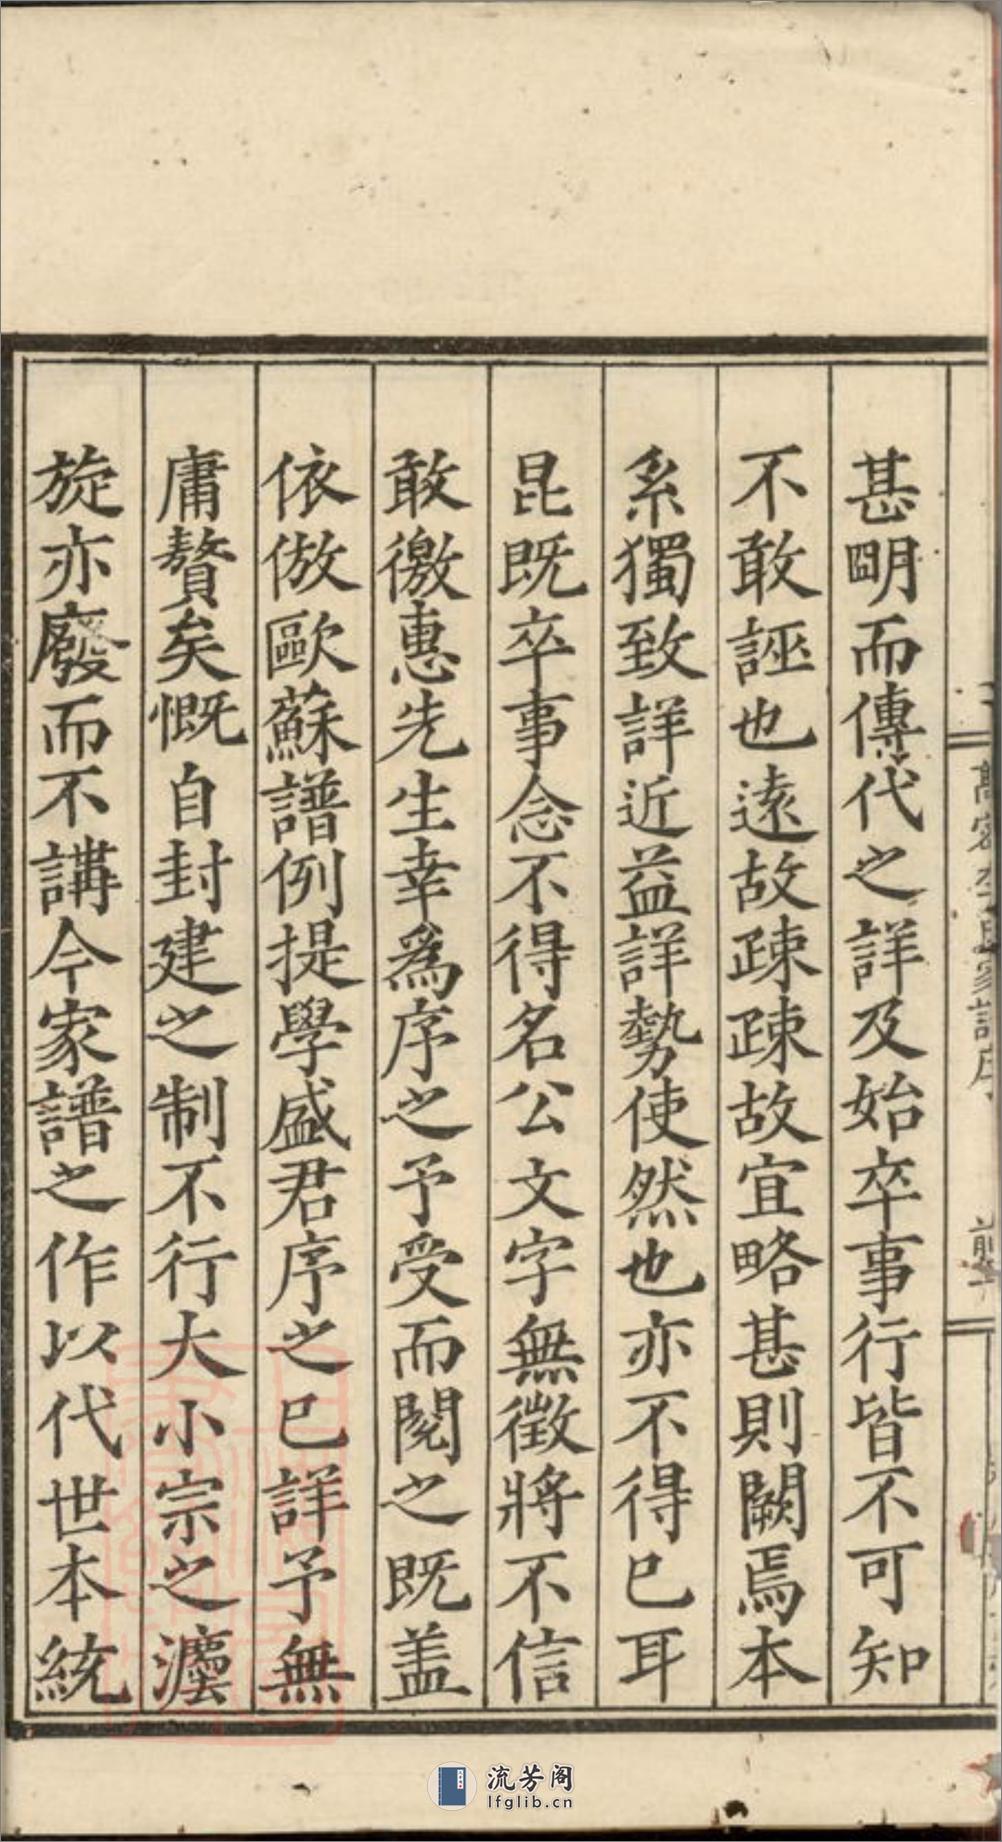 甚明而傳代之詳及始卒事行皆不可知
不敢誣也遠故疎疎故宜略甚則闕焉本
系獨致詳近益詳勢使然也亦不得已耳
昆既卒事念不得名公文字無徵將不信
敢徼惠先生幸爲序之予受而閱之既盖
依倣歐蘇譜例提學盛君序之已詳予無
庸贅矣慨自封建之制不行大小宗之灋
旋亦廢而不講今家譜之作以代世本統
流芳阁
lfglib.cn